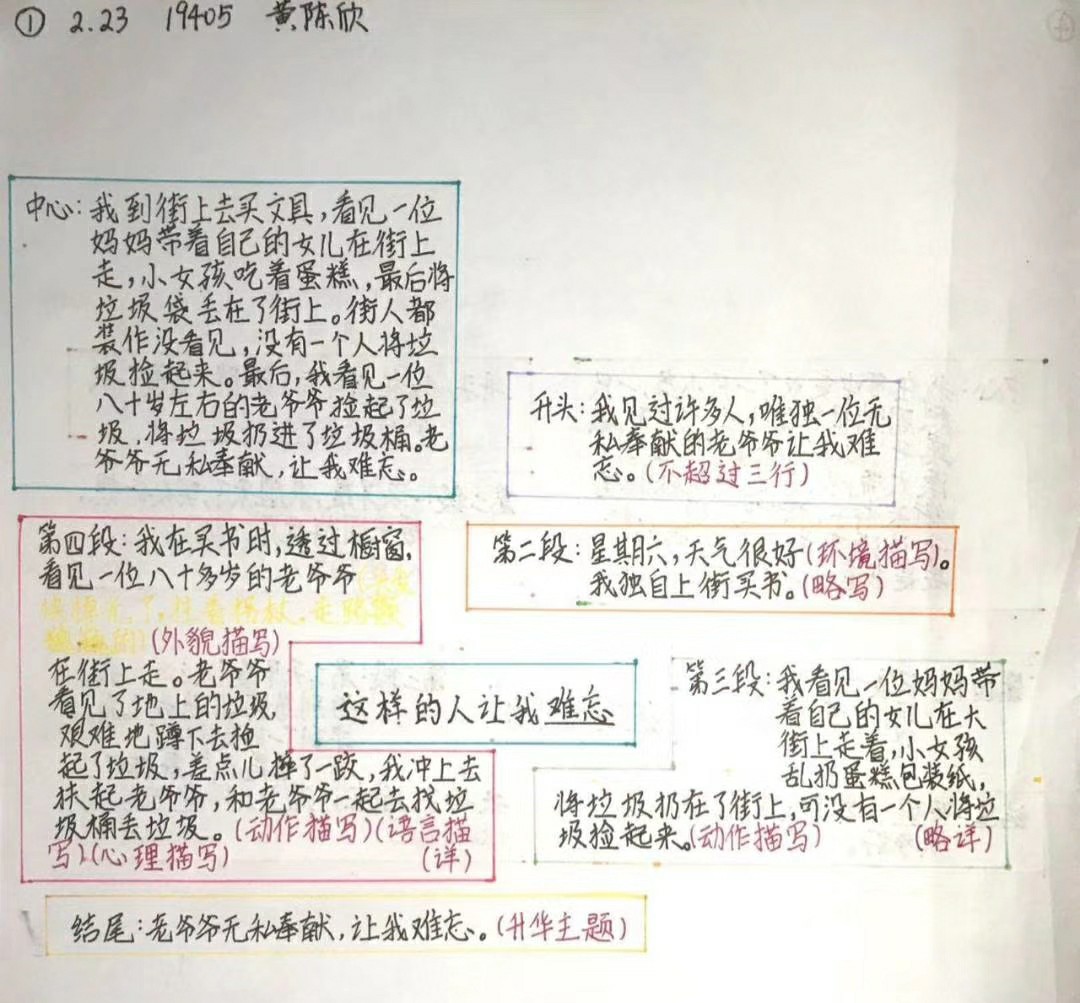 ① 2.23 19405 黄陈欣
中心:我到街上去买文具,看见一位
妈妈带着自己的女儿在街上
走,小女孩吃着蛋糕,最后将
垃圾袋丢在了街上。街人都
装作没看见,没有一个人将垃
圾捡起来。最后,我看见一位
八十岁左右的老爷爷捡起了垃
圾,将垃圾扔进了垃圾桶。老
爷爷无私奉献,让我难忘。
开头:我见过许多人,唯独一位无
私奉献的老爷爷让我难
忘。(不超过三行)
第二段:星期六,天气很好(环境描写)。
我独自上街买书。(略写)
第四段:我在买书时,透过橱窗,
看见一位八十多岁的老爷爷
(外貌描写)
在街上走。老爷爷
看见了地上的垃圾,
艰难地蹲下去捡
起了垃圾,差点儿摔了一跤,我冲上去
扶起老爷爷,和老爷爷一起去找垃
圾桶丢垃圾。(动作描写)(语言描
写)(心理描写) (详)
这样的人让我难忘
第三段:我看见一位妈妈带
着自己的女儿在大
街上走着,小女孩
乱扔蛋糕包装纸,
将垃圾扔在了街上,可没有一个人将垃
圾捡起来。(动作描写) (略详)
结尾:老爷爷无私奉献,让我难忘。(升华主题)